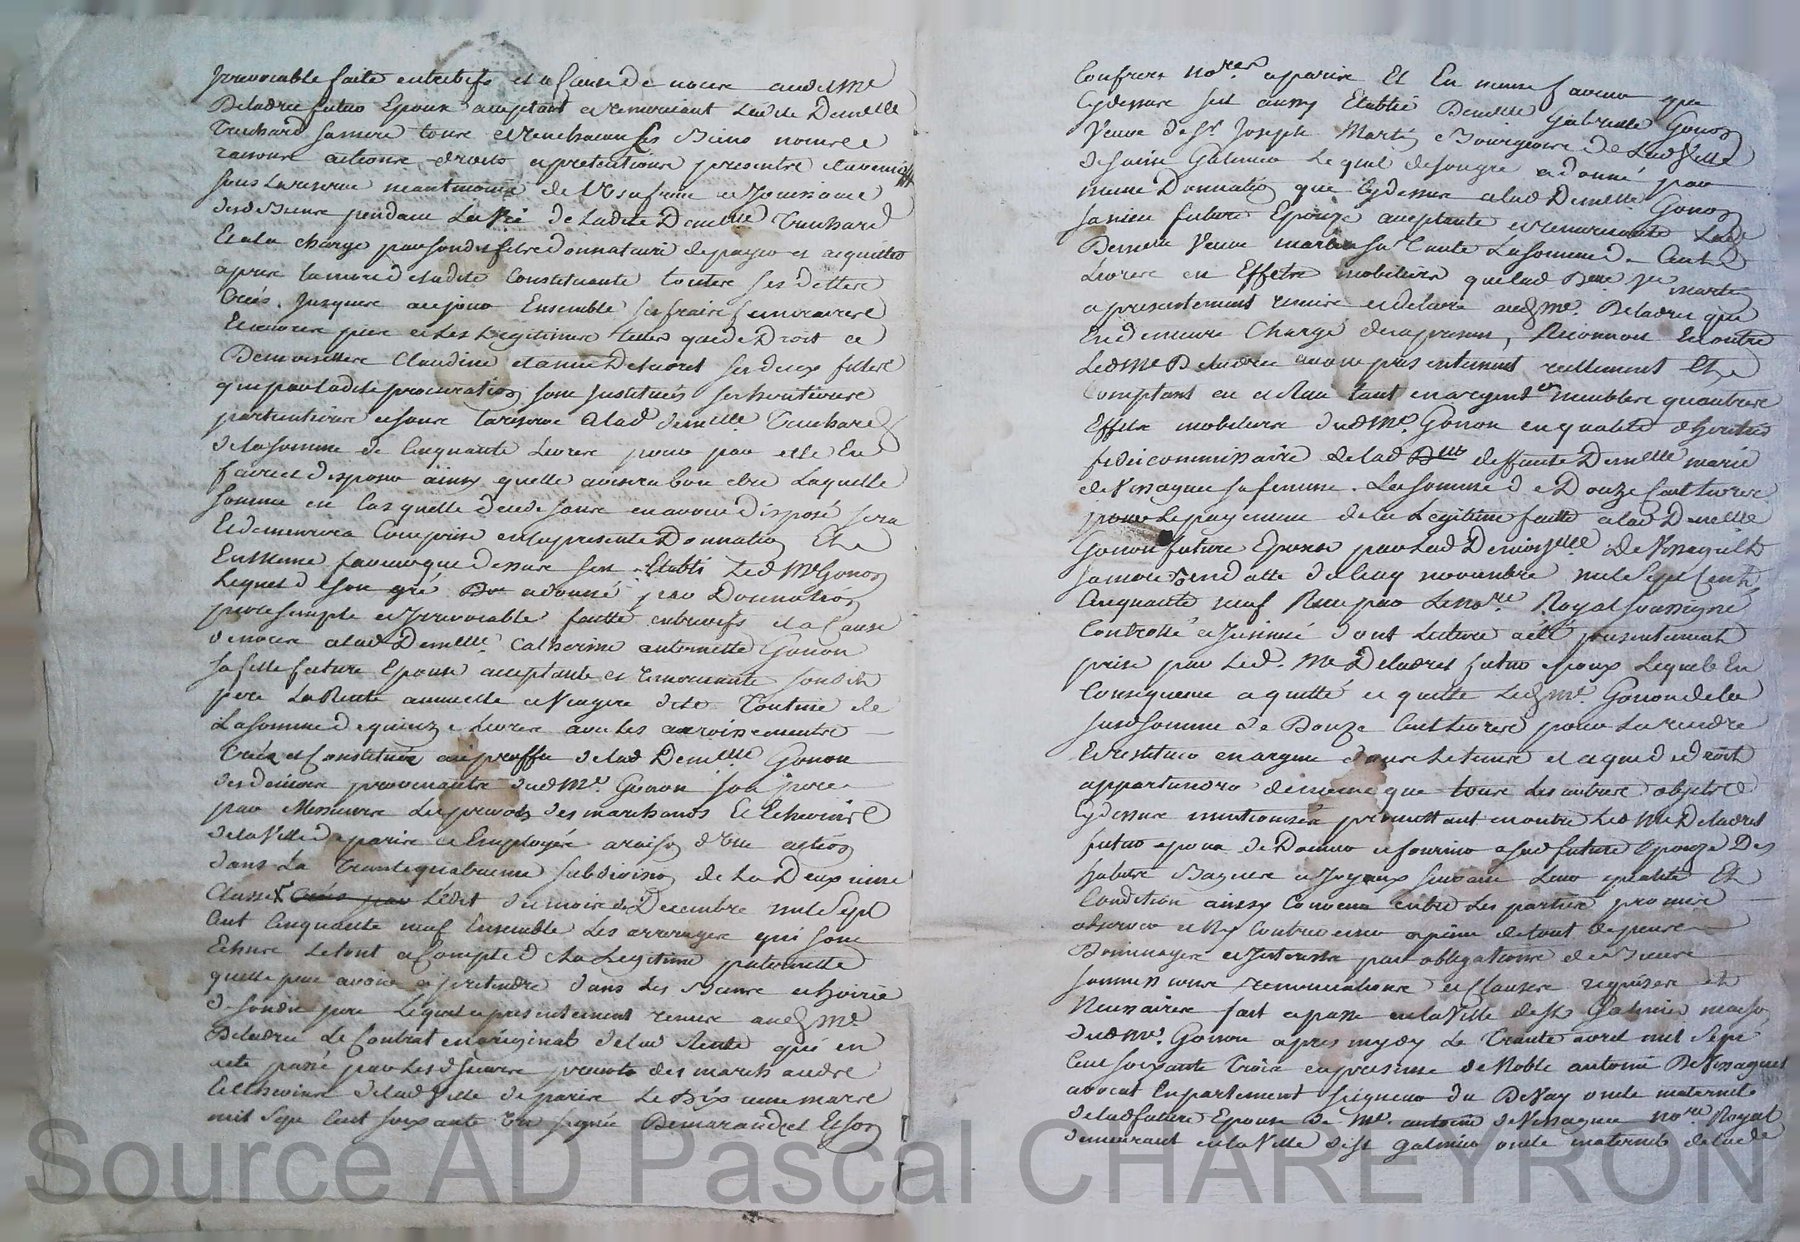 Irrevocable faite entrevifs et a Cause de noces audit Me
Deladret futur Epoux acceptant et remerciant Ladite Demelle
Truchard sa mere tous et un chacuns ses Biens noms
raisons actions droits et pretentions presentes et avenir
sous la reserve neantmoins de L'Usufruit et Jouissance
desd Biens pendant La Vie de Ladite Demelle Truchard
Et a la charge par sondit fils donnataire de payer et acquitter
apres la mort de ladite Constituante toutes ses dettes
Crées Jusques aujour Ensemble ses fraix funeraires
et les Legitimes telles que de Droit a
Demoiselles Claudine et anne Deladret ses deux filles
que par ladite procuration sont Instituées ses heritieres
particulieres et sous la reserve a lad demelle Truchard
de la somme de Cinquante Livres pour par elle En
faire et disposer ainsy quelle avisera bon etre Laquelle
somme en Cas quelle decede sans en avoir disposé sera
Et demeurera Comprise en la presente Donnation Et
En meme faveur que dessus sest Etabli Led Me Gonon
Lequel de son gré a donné par Donnation
pure simple et Irrevocable faitte entrevifs et a Cause
de noces a lad Demelle Catherine antoinette Gonon
sa fille future Epouse acceptante et remerciante sondit
pere La Rente annuelle et Viagere dite Tontine de
La somme de quinze Livres avec Les accroissements
Crées et Constituée au proffit de lad Demelle Gonon
des deniers provenants dud Me Gonon son pere
par Messieurs Les prevots des marchands Et Echevins
de la Ville de paris et Employée a raison d'Une action
dans La Trente quatrieme subdivision de La Deuxieme
Classe Crées par L'edit du mois de Decembre mil Sept
Cent Cinquante neuf Ensemble Les arrerages qui sont
Echus Le tout a Compte de La Legitime paternelle
quelle peut avoir a pretendre dans Les Biens et hoirie
de sondit pere Lequel a presentement remis aud Me
Deladret Le Contrat en original de lad Rente qui en
a eté passé par Lesd sieurs prevots des marchands
Et Echevins de lad Ville de paris Le Dix mars
mil Sept Cent soixante Un signé Demarandel Et son
Confrere Nores a paris Et En meme faveur que
Cydessus sest aussy Etablie Demelle Gabrielle Gonon
Veuve de Sr Joseph Martin Bourgeois de Lad Ville
de saint Galmier Lequel de son gre a donné par
meme Donnation que Cydessus a lad Demelle Gonon
sa niece future Epouze acceptante et remerciante Lad
Demelle Veuve martin sa Tante La somme de Cent
Livres en Effets mobiliers que lad Dme Ve martin
a presentement remis et delivré aud Me Deladret qui
En demeure Chargé des a present, Reconnoit En outre
Led Me Deladret avoir presentement reellement Et
Comptant eu et Recu tant en argent en meubles qu'autres
Effets mobiliers dud Me Gonon en qualité d'heritier
fideicommissaire de lad deffunte Demelle marie
de Vissaguet sa femme. La somme de Douze Cent Livres
pour Le payement de la Legitime faitte a lad Demelle
Gonon future Epouse par Lad Demoiselle de Vissaguet
sa mere en datte du Cinq novembre mil Sept Cent
Cinquante neuf Recu par Le nore Royal soussigné
Controllé et Insinué dont Lecture a eté presentement
prise par Led. Me Deladret futur epoux Lequel En
Consequence a quitté et quitte Led Me Gonon de la
susd somme de Douze Cent Livres pour La rendre
Et restituer en argent dans Le tems et a qui de droit
appartiendra de meme que tous Les autres objets
Cydessus mentionnés promettant en outre Led Me Deladret
futur epoux de Donner et fournir a sad future Epouze Des
habits Bagues et Joyaux suivant Leur qualité Et
Condition ainsy Convenu entre Les parties promis
observer et Ny Contrevenir a peine de tout depens
Dommages et Interests par obligations de Biens
soumissions renonciations et Clauses requises Et
Necessaires fait et passé en la Ville de St Galmier maison
dud Me Gonon apres mydy Le Trente avril mil Sept
Cent soixante Trois en presence de Noble antoine De Vissaguet
avocat En parlement seigneur du Devay oncle maternel
de lad future Epouse de Me antoine de Vissaguet nore Royal
demeurant en la Ville de St Galmier oncle maternel de lad
Source AD Pascal CHAREYRON